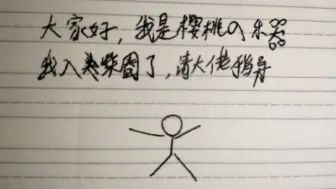 大家好，我是樱桃の
我入柴圈了，请大佬指导